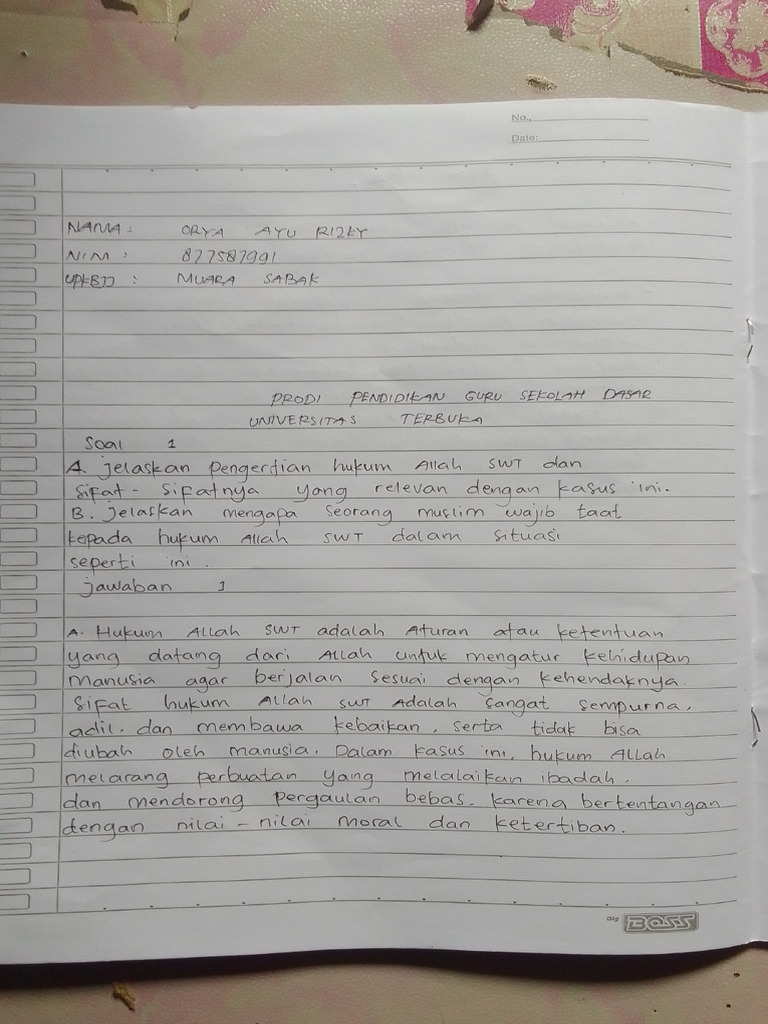 No.
Date:
NAMA : ORYA AYU RIZKY
NIM : 877587991
UPKBJJ : MUARA SABAK
PRODI PENDIDIKAN GURU SEKOLAH DASAR
UNIVERSITAS TERBUKA
Soal 1
A. jelaskan pengertian hukum Allah SWT dan
Sifat - Sifatnya yang relevan dengan kasus ini.
B. jelaskan mengapa seorang muslim wajib taat
kepada hukum Allah SWT dalam situasi
seperti ini.
jawaban 1
A. Hukum Allah SWT adalah Aturan atau ketentuan
yang datang dari Allah untuk mengatur kehidupan
manusia agar berjalan sesuai dengan kehendaknya.
Sifat hukum Allah SWT Adalah sangat sempurna,
adil, dan membawa kebaikan, serta tidak bisa
diubah oleh manusia. Dalam kasus ini, hukum Allah
melarang perbuatan yang melalaikan ibadah.
dan mendorong pergaulan bebas. karena bertentangan
dengan nilai - nilai moral dan ketertiban.
BOSS